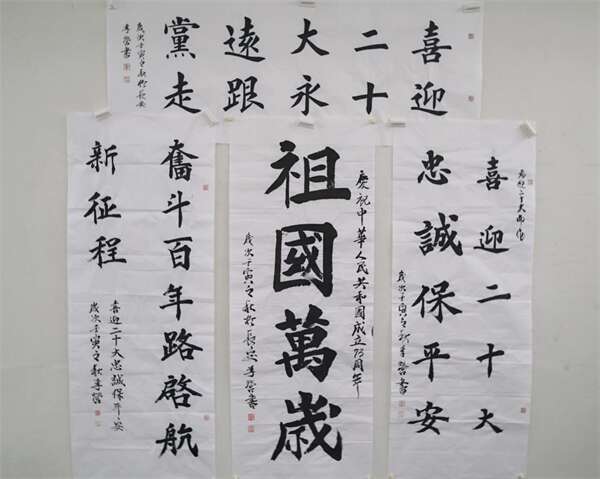 喜迎
二十
大永
遠跟
黨走
歲次壬寅之秋於長安
李營書
喜迎二十大
忠誠保平安
歲次壬寅之秋李營書
慶祝中華人民共和國成立73周年
祖國萬歲
歲次壬寅之秋於長安李營書
奮斗百年路啓航
新征程
喜迎二十大忠誠保平安
歲次壬寅之秋李營